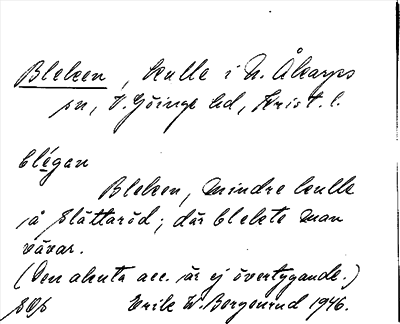 Bleken, kulle i N. Åkarps
sn, V. Göinge hd, Krist. l.
blégan
Bleken, mindre kulle
på Slättaröd; där blekte man
vävar.
(Den akuta acc. är ej övertygande.)
Erik W. Bergstrand 1946.